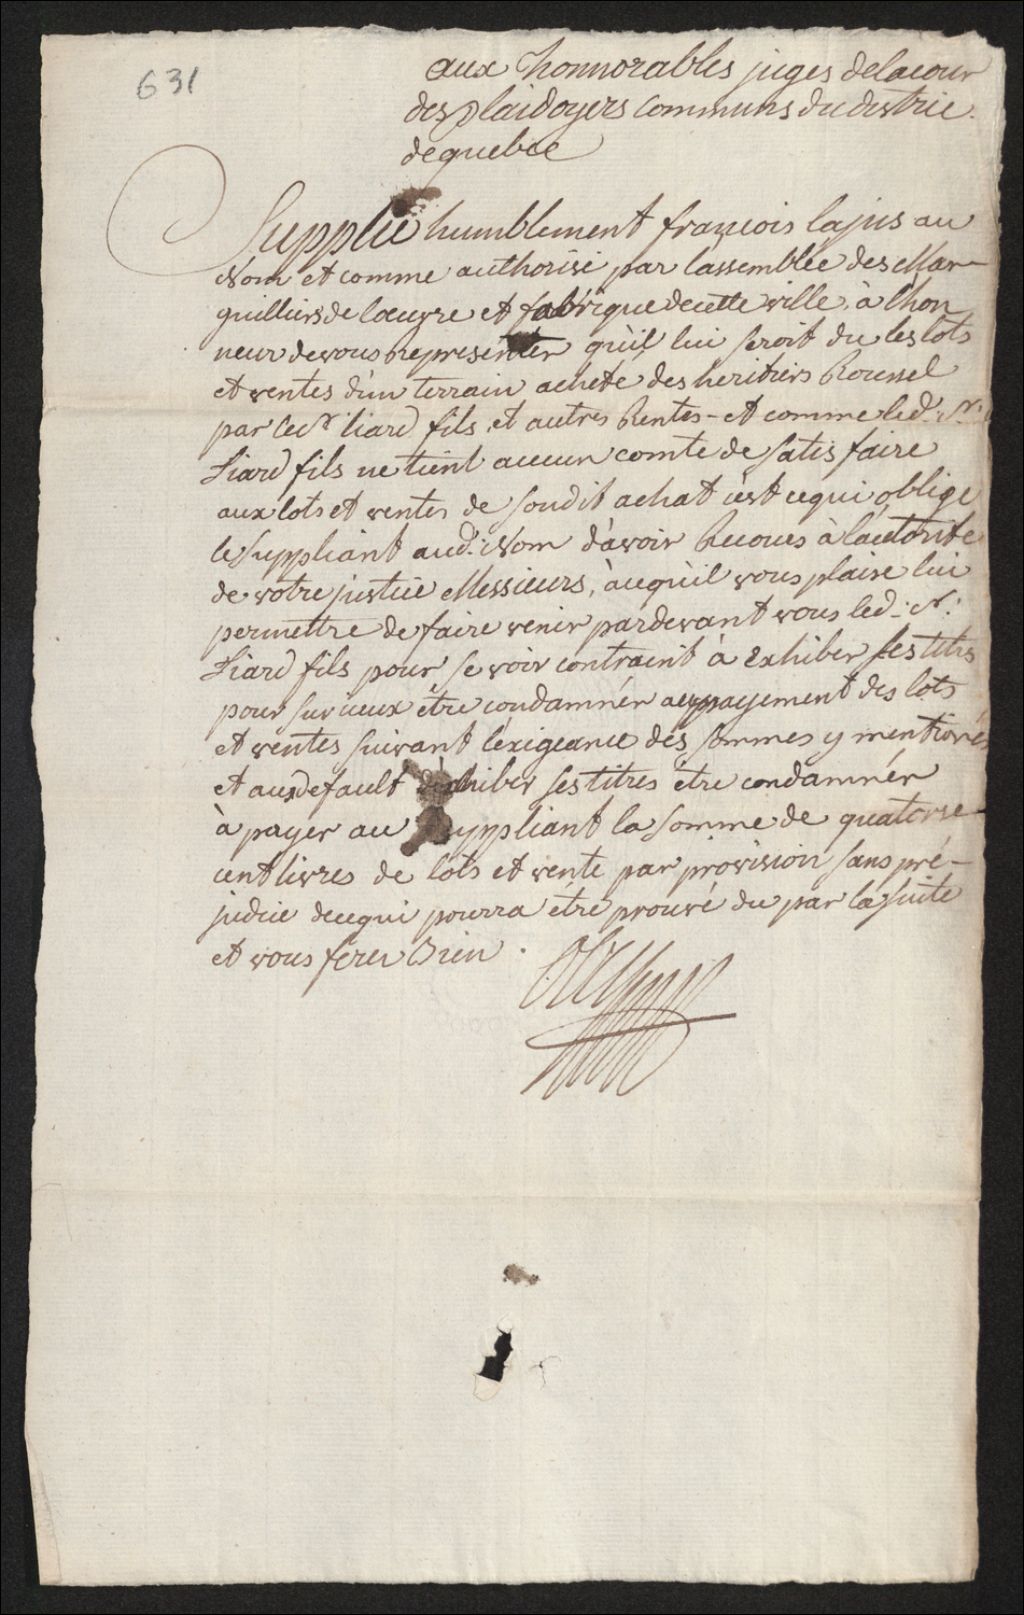 631
aux honnorables juges delacour
des plaidoyers communs du distric
dequebec
Supplie humblement françois lajus au
Nom et comme authorisé par lassemblée des Mar-
guilliers de loeuvre et fabrique decette ville, à lhon
neur devous representer qu'il lui seroit du les lots
et ventes d'un terrain acheté des heritiers Roussel
par Le Sr. liard fils, et autres Rentes - et comme led. Sr.
Liard fils ne tient aucun comte de satisfaire
aux lots et ventes de soudit achat cest cequi oblige
le suppliant aud. Nom d'avoir Recours à lautorité
de votre justice Messieurs, àcequil vous plaise lui
permettre de faire venir pardevant vous led. Sr.
Liard fils pour se voir contraint à Exhiber ses titres
pour sur iceux être condamnér aupayement des lots
et ventes suivant l'exigeance des sommes y mentionés
et audefault dexhiber ses titres être condamnér
à payer au suppliant la somme de quatorse
cent livres de lots et vente par provision sans pré-
judice decequi pourra être prouvé du par la suite
et vous ferez Bien.